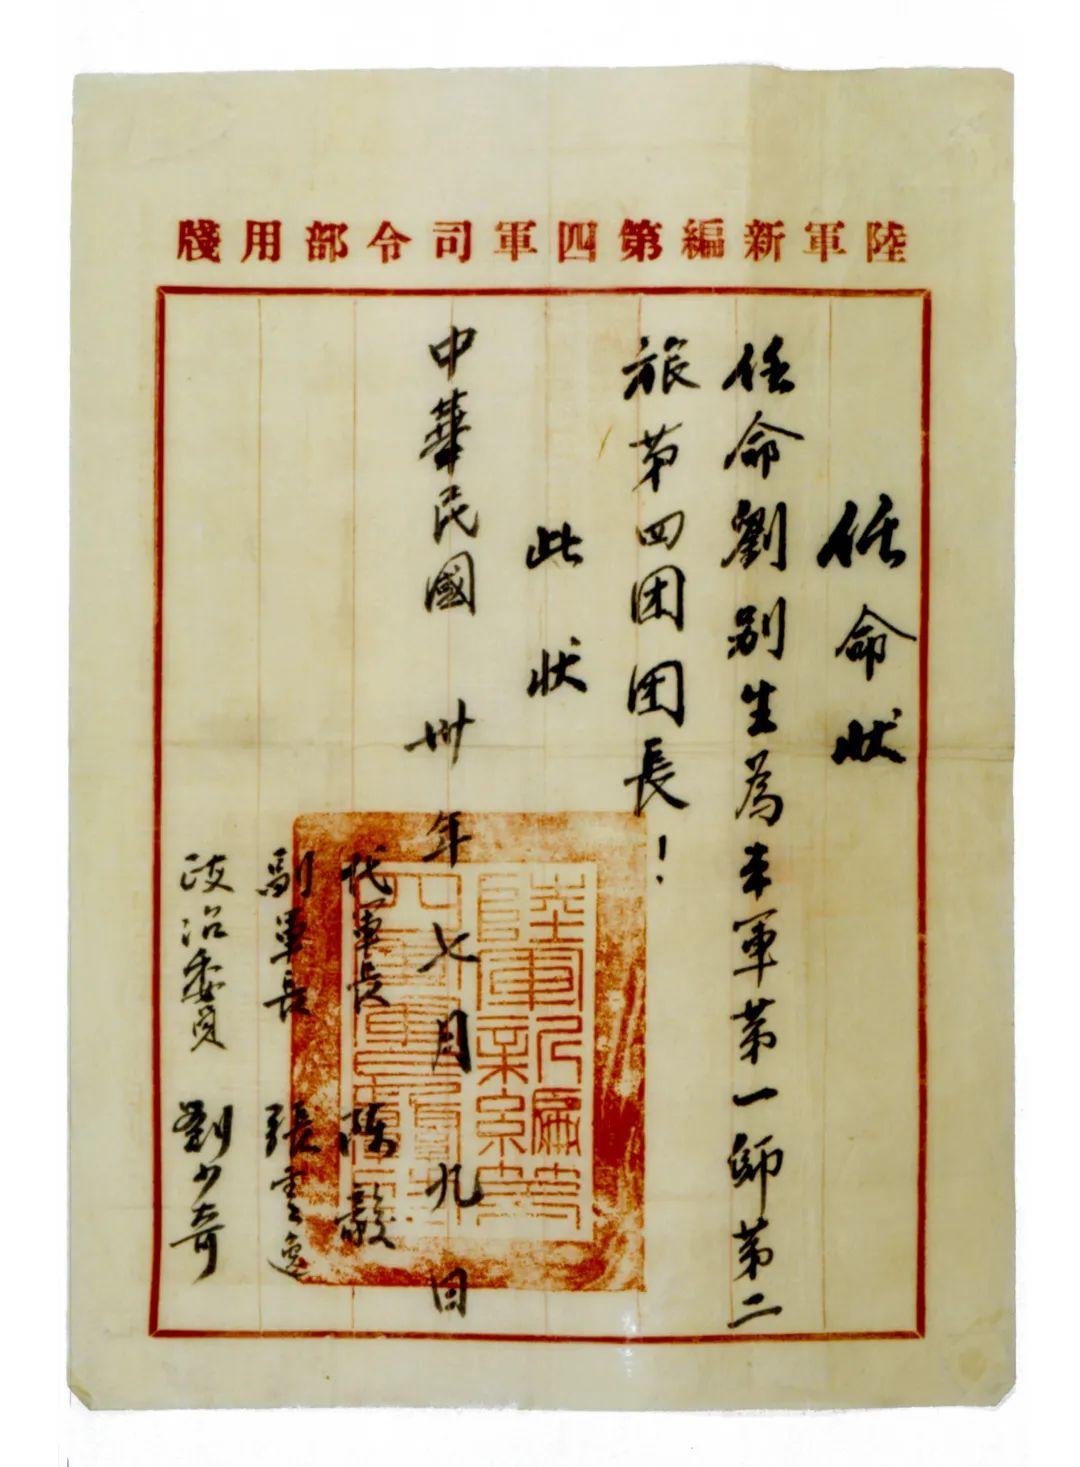 陸軍新編第四軍司令部用牋
任命状
任命劉别生為本軍第一師第二
旅第四团团長！
此状
中華民國卅年七月九日
代軍長 陈毅
副軍長 張雲逸
政治委員 劉少奇
陸軍新編第
四軍